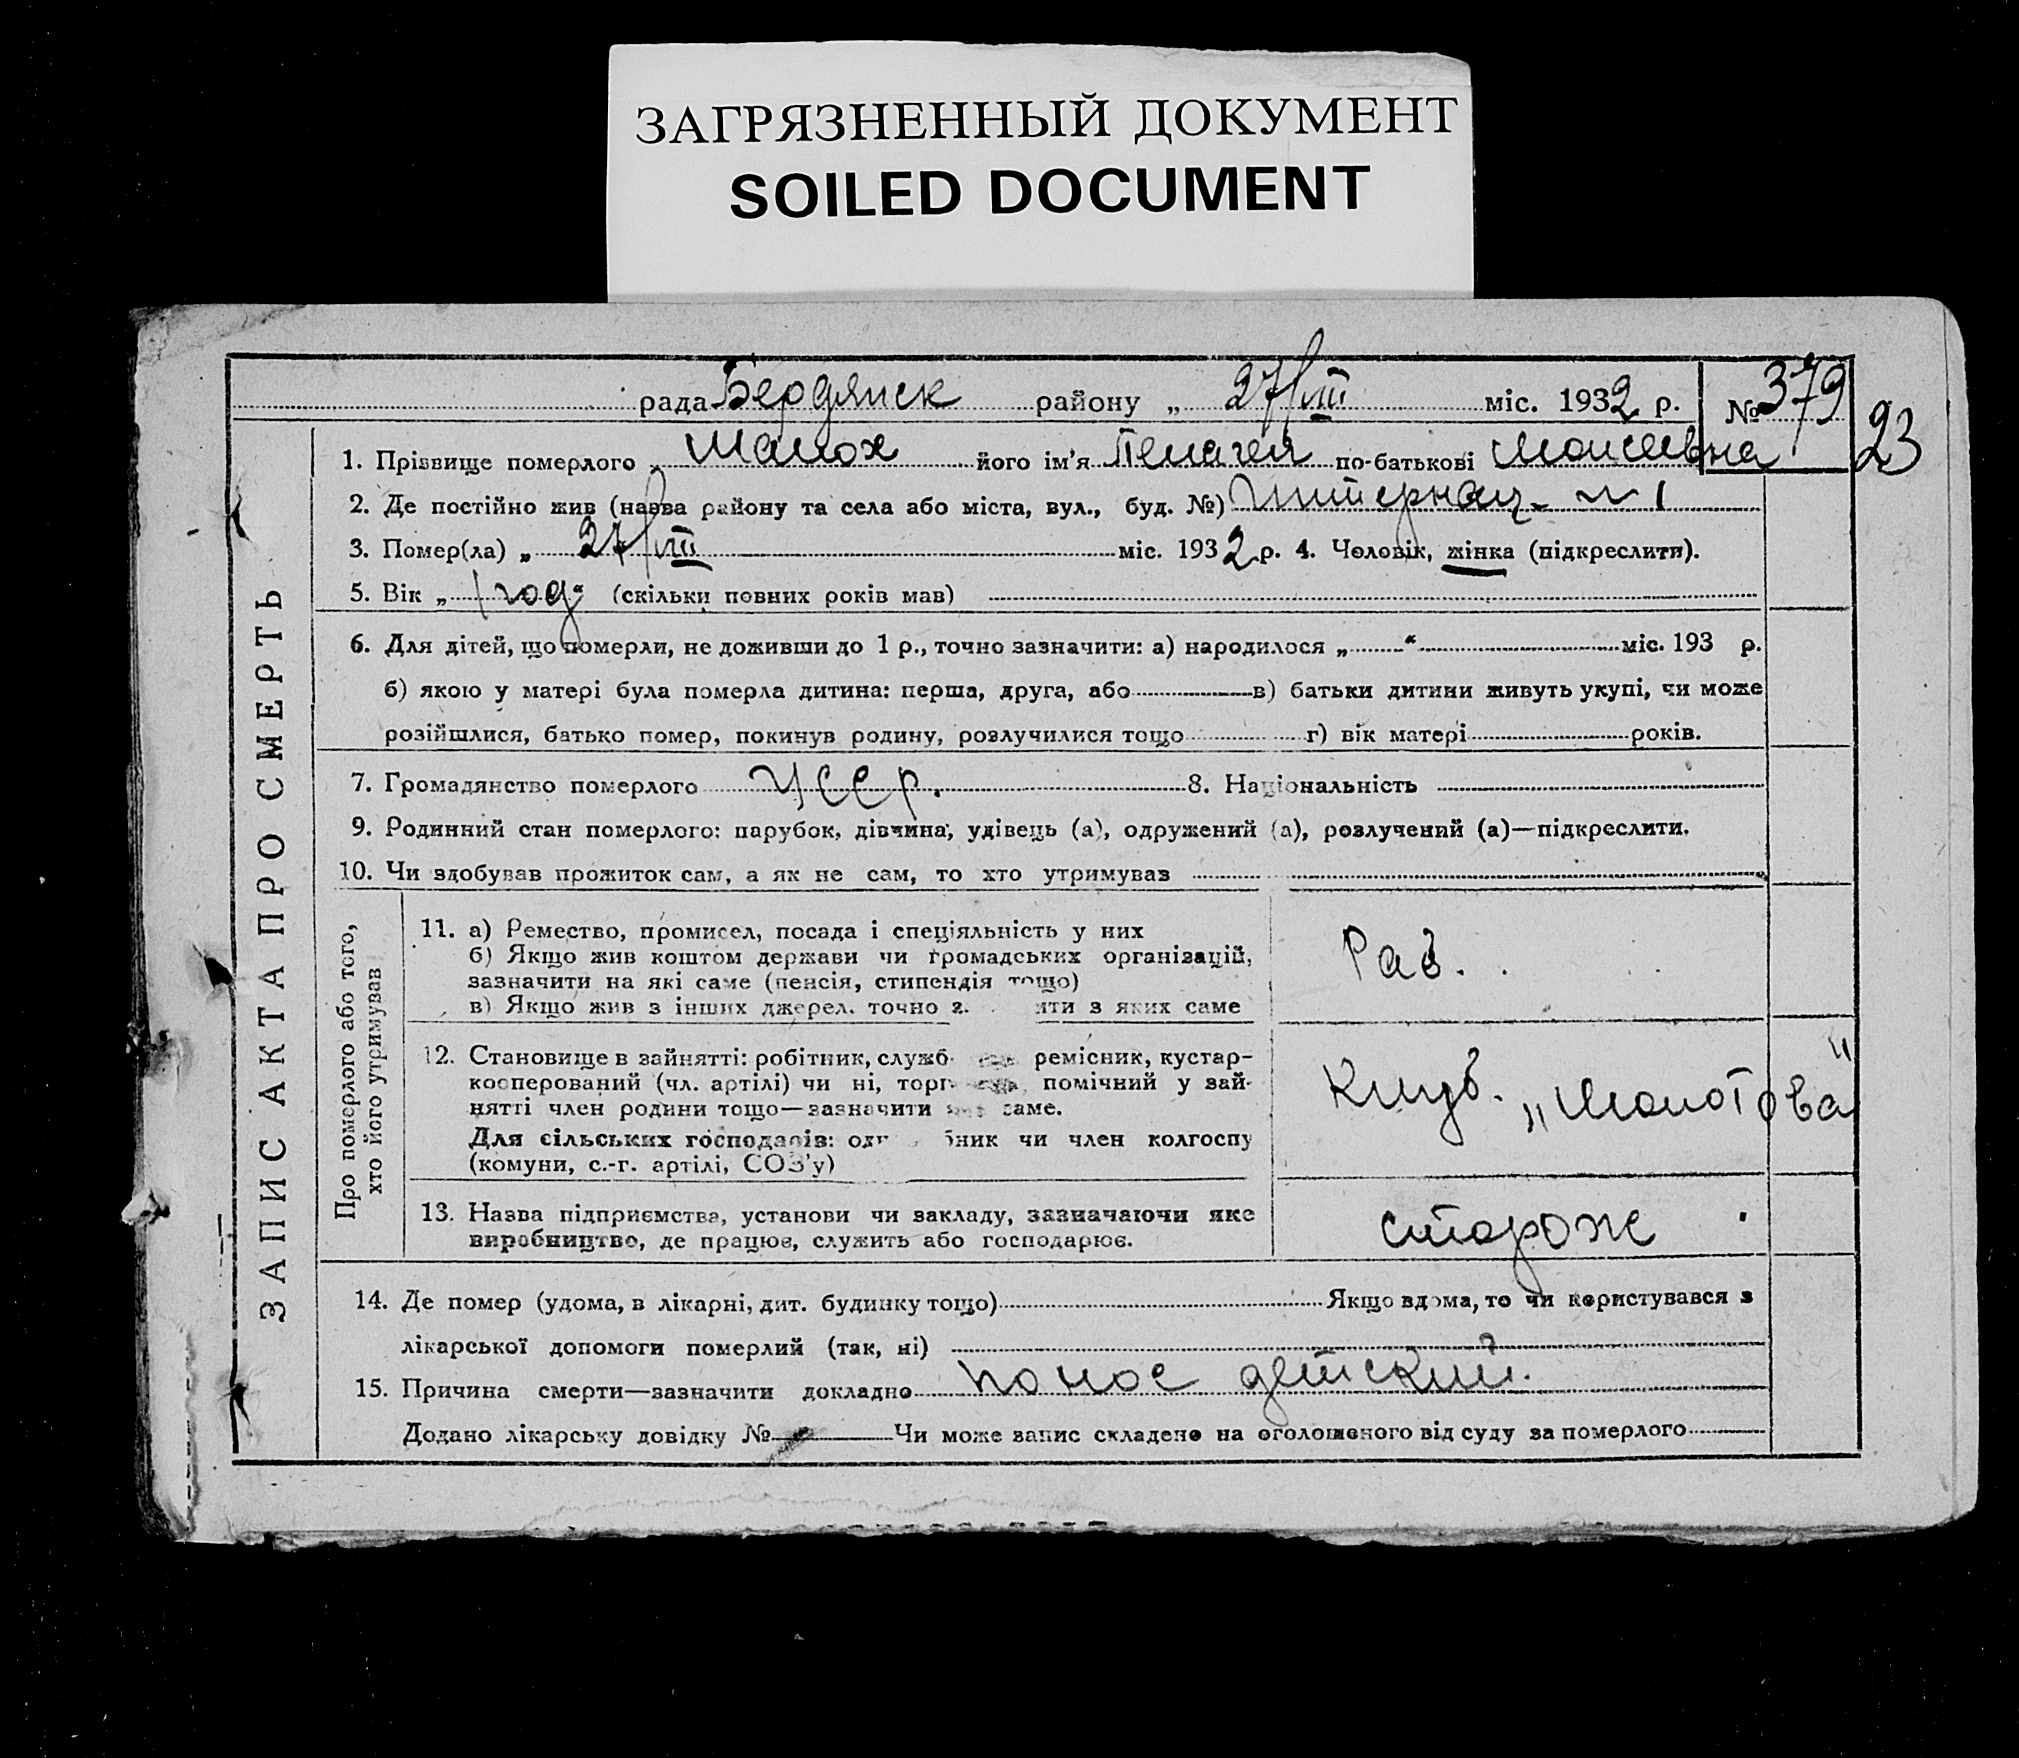 ЗАГРЯЗНЕННЫЙ ДОКУМЕНТ
SOILED DOCUMENT
рада Бердянск району „ 27/VIII міс. 1932 р. № 379
23
ЗАПИС АКТА ПРО СМЕРТЬ
1. Прізвище померлого Шамох його ім'я Пелагея по-батькові Моисеевна
2. Де постійно жив (назва району та села або міста, вул., буд. №) Интернац. № 1
3. Помер(ла) „ 27/VIII міс. 1932 р. 4. Чоловік, жінка (підкреслити).
5. Вік „ 1 год. (скільки повних років мав)
6. Для дітей, що померли, не доживши до 1 р., точно зазначити: а) народилося „ “ міс. 193 р.
б) якою у матері була померла дитина: перша, друга, або в) батьки дитини живуть укупі, чи може
розійшлися, батько помер, покинув родину, розлучилися тощо г) вік матері років.
7. Громадянство померлого УССР. 8. Національність
9. Родинний стан померлого: парубок, дівчина, удівець (а), одружений (а), розлучений (а)—підкреслити.
10. Чи здобував прожиток сам, а як не сам, то хто утримував
Про померлого або того,
хто його утримував
11. а) Ремество, промисел, посада і спеціяльність у них
б) Якщо жив коштом держави чи громадських організацій,
зазначити на які саме (пенсія, стипендія тощо)
в) Якщо жив з інших джерел, точно з яких саме
Раб.
12. Становище в зайнятті: робітник, служб ремісник, кустар-
кооперований (чл. артілі) чи ні, торг помічний у зай-
нятті член родини тощо—зазначити саме.
Для сільських господарів: чи член колгоспу
(комуни, с.-г. артілі, СОЗ'у)
Клуб. „Молотова"
13. Назва підприємства, установи чи закладу, зазначаючи яке
виробництво, де працює, служить або господарює.
сторож
14. Де помер (удома, в лікарні, дит. будинку тощо) Якщо вдома, то чи користувався з
лікарської допомоги померлий (так, ні)
15. Причина смерти—зазначити докладно понос детский.
Додано лікарську довідку № Чи може запис складено на оголошеного від суду за померлого